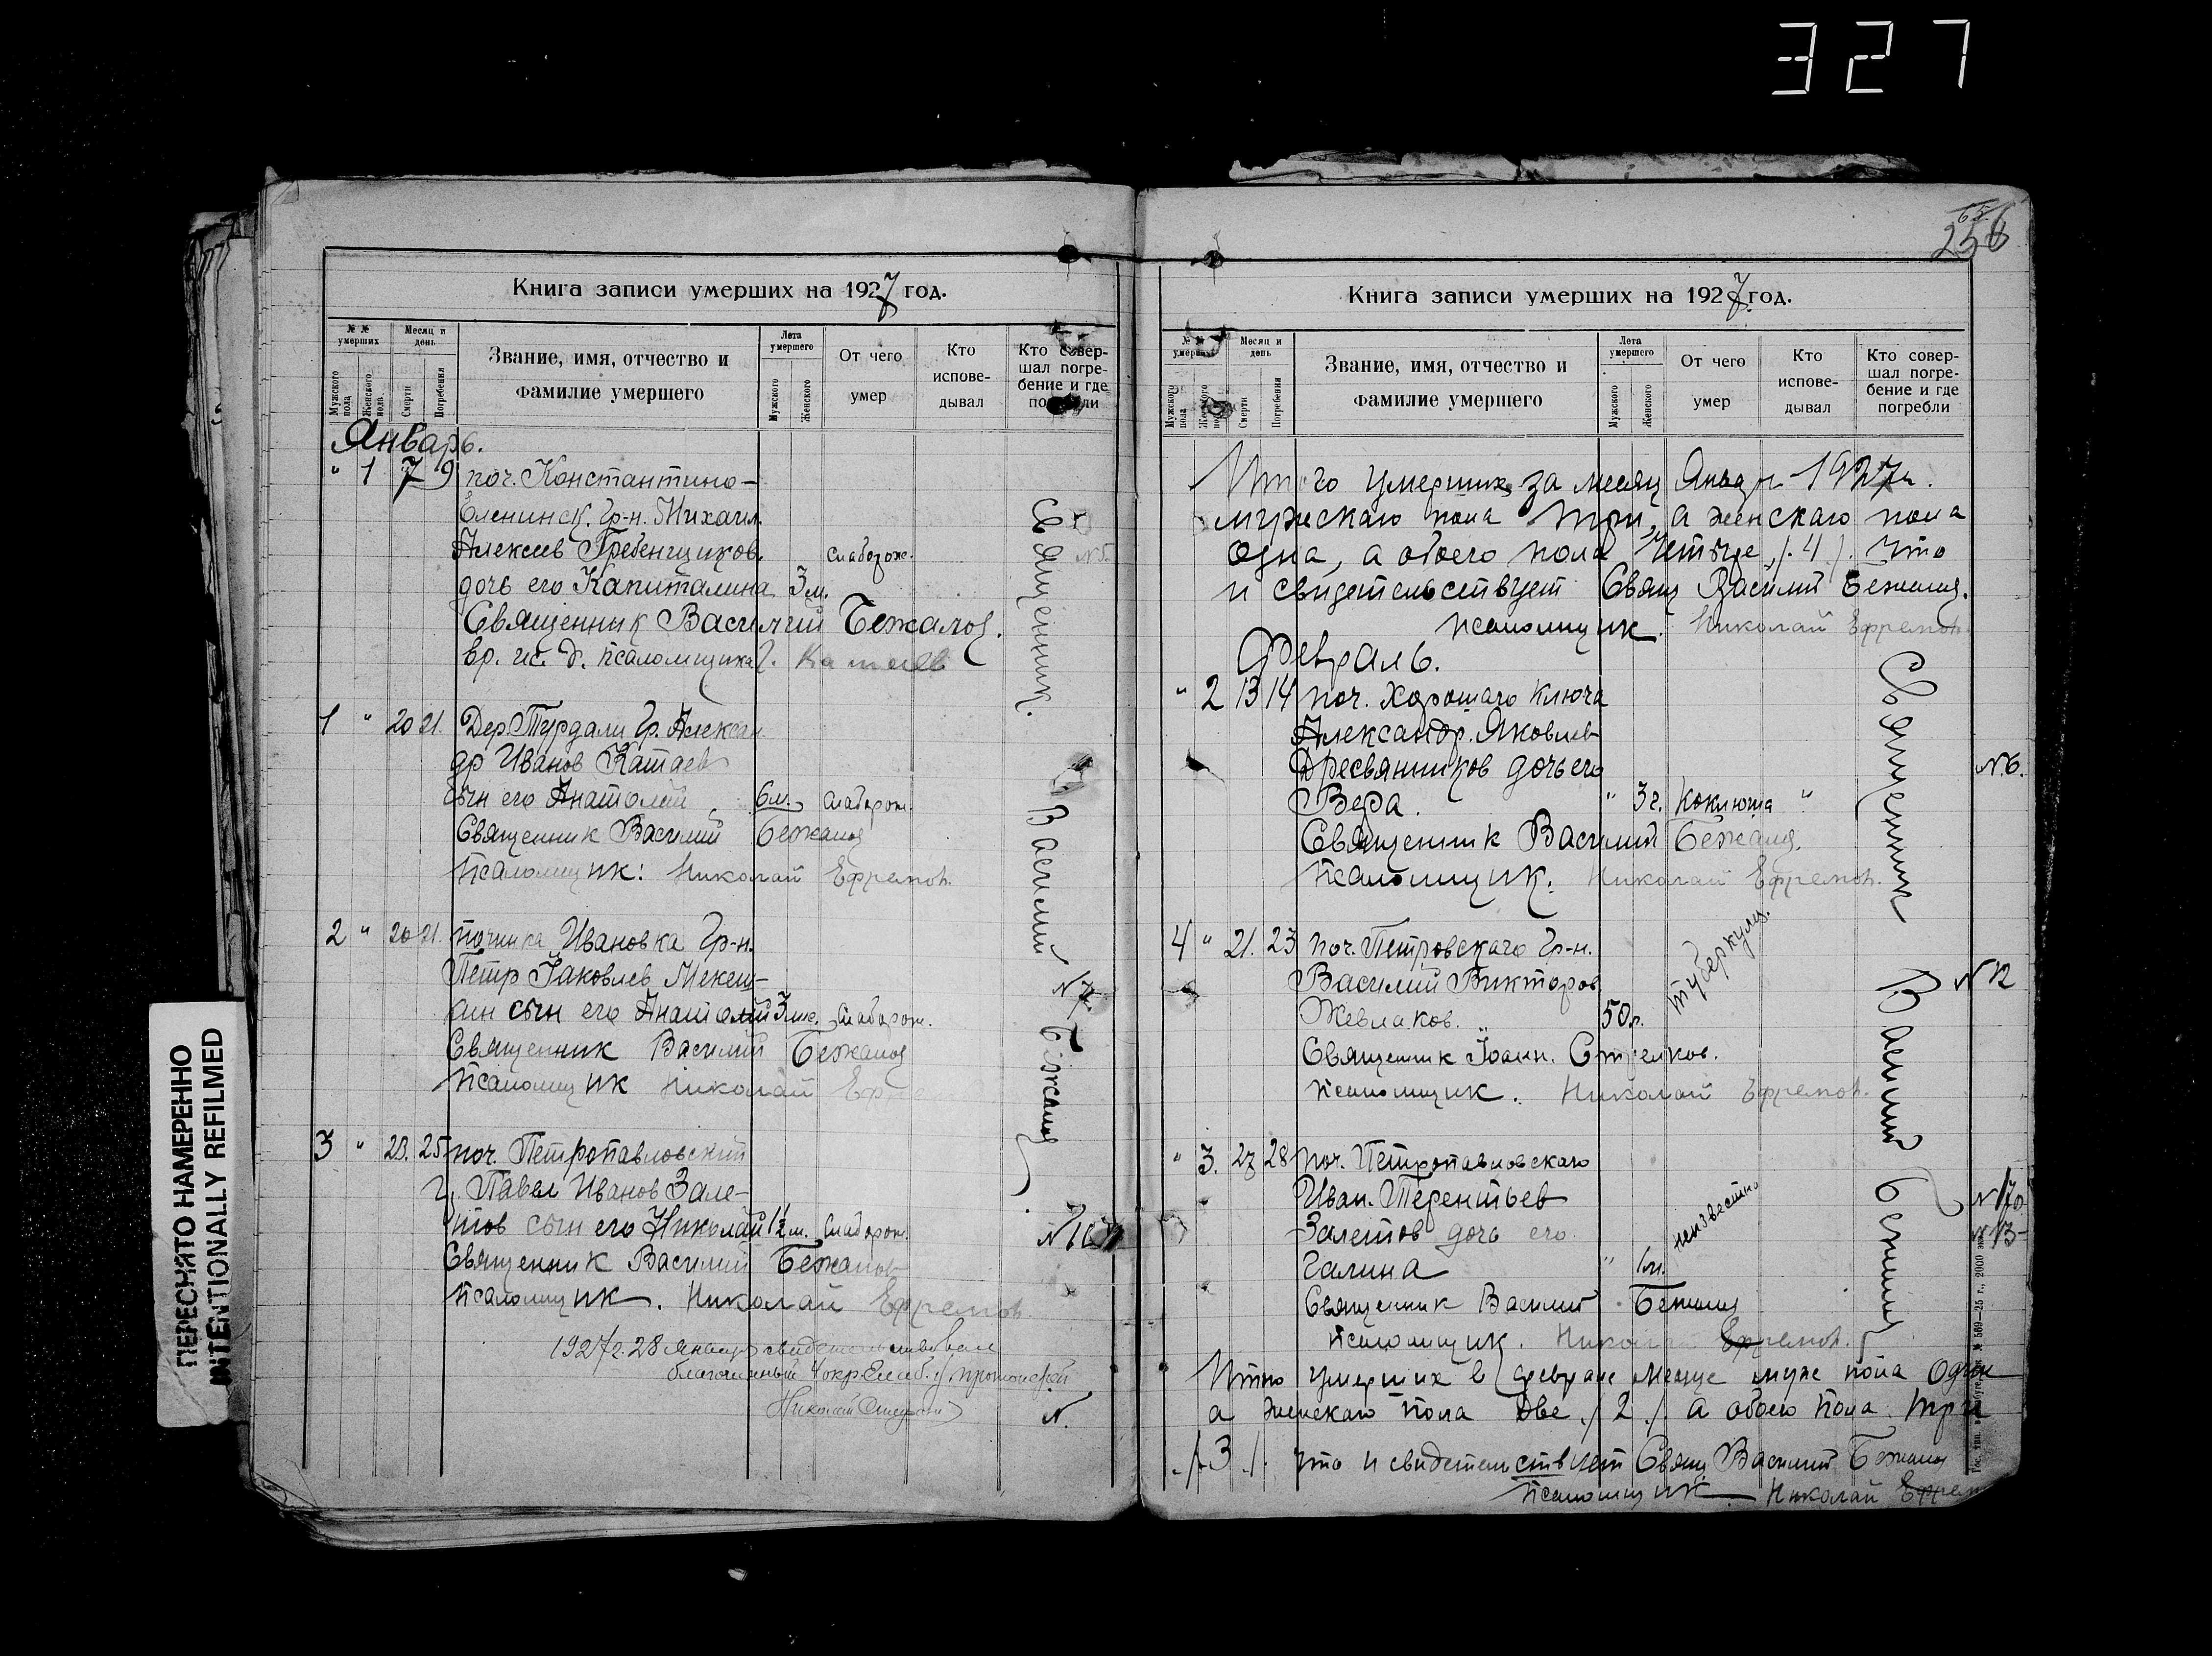 327
65
256
ПЕРЕСНЯТО НАМЕРЕННО
INTENTIONALLY REFILMED
Книга записи умерших на 1927 год.
№ № умерших
Месяц и день
Звание, имя, отчество и фамилие умершего
Лета умершего
От чего умер
Кто исповедывал
Кто совершал погребение и где погребли
Мужского пола
Женского пола
Смерти
Погребения
Мужского
Женского
Январь.
" 1 7 9 поч. Константино-
Еленинск. Гр-н. Михаил.
Алексеев Гребенщиков. слаборож.
дочь его Капиталина 3 м.
Священник Василий Бежанов.
вр. ис. д. псаломщика Г. Катаев
1 " 20 21. Дер. Турдали Гр. Алексан
др Иванов Катаев
сын его Анатолий 6 м. слаборож.
Священник Василий Бежанов
Псаломщик: Николай Ефремов.
2 " 20 21. починка Ивановка Гр-н.
Петр Яковлев Мекеш-
кин сын его Анатолий 3 мес. слаборож.
Священник Василий Бежанов
Псаломщик Николай Ефрем
3 " 23. 25 поч. Петропавловский
Гр. Павел Иванов Зале-
тов сын его Николай 1½ м. слаборож.
Священник Василий Бежанов
Псаломщик. Николай Ефремов
1927 г. 28 января свидетельствовал
благочинный 4 окр. Елаб. у. протоиерей
Николай
Священник. Василий Бежанов
N 5.
N 7
N 16
N.
Книга записи умерших на 1927 год.
№ № умерших
Месяц и день
Звание, имя, отчество и фамилие умершего
Лета умершего
От чего умер
Кто исповедывал
Кто совершал погребение и где погребли
Мужского пола
Женского пола
Смерти
Погребения
Мужского
Женского
Итого умерших за месяц Январь 1927 г.
мужскаго пола три, а женскаго пола
одна, а обоего пола четыре /.4/. Что
и свидетельствует Свящ Василий Бежанов.
псаломщик. Николай Ефремов.
Февраль.
" 2 13 14 поч. Хорошаго Ключа
Александр. Яковлев
Дресвянников дочь его
Вера. " 3 г. коклюша "
Священник Василий Бежанов.
Псаломщик. Николай Ефремов.
4 " 21. 23 поч. Петровскаго Гр-н.
Василий Викторов
Жевлаков. 50 л. туберкулез.
Священник Іоанн. Стрелков.
Псаломщик. Николай Ефремов.
" 3. 27 28 поч. Петропавловскаго
Иван. Терентьев
Залетов дочь его
Галина " 1 м. неизвестно
Священник Василий Бежанов
Псаломщик. Николай Ефремов.
Итого умерших в Феврале месяце муже пола Один
а женскаго пола две /.2./. а обоего пола три
./.3./. что и свидетельствует Свящ. Василий Бежанов
Псаломщик Николай Ефрем
Священник Василий Бежанов
N 6.
N 12
N 17
N 13